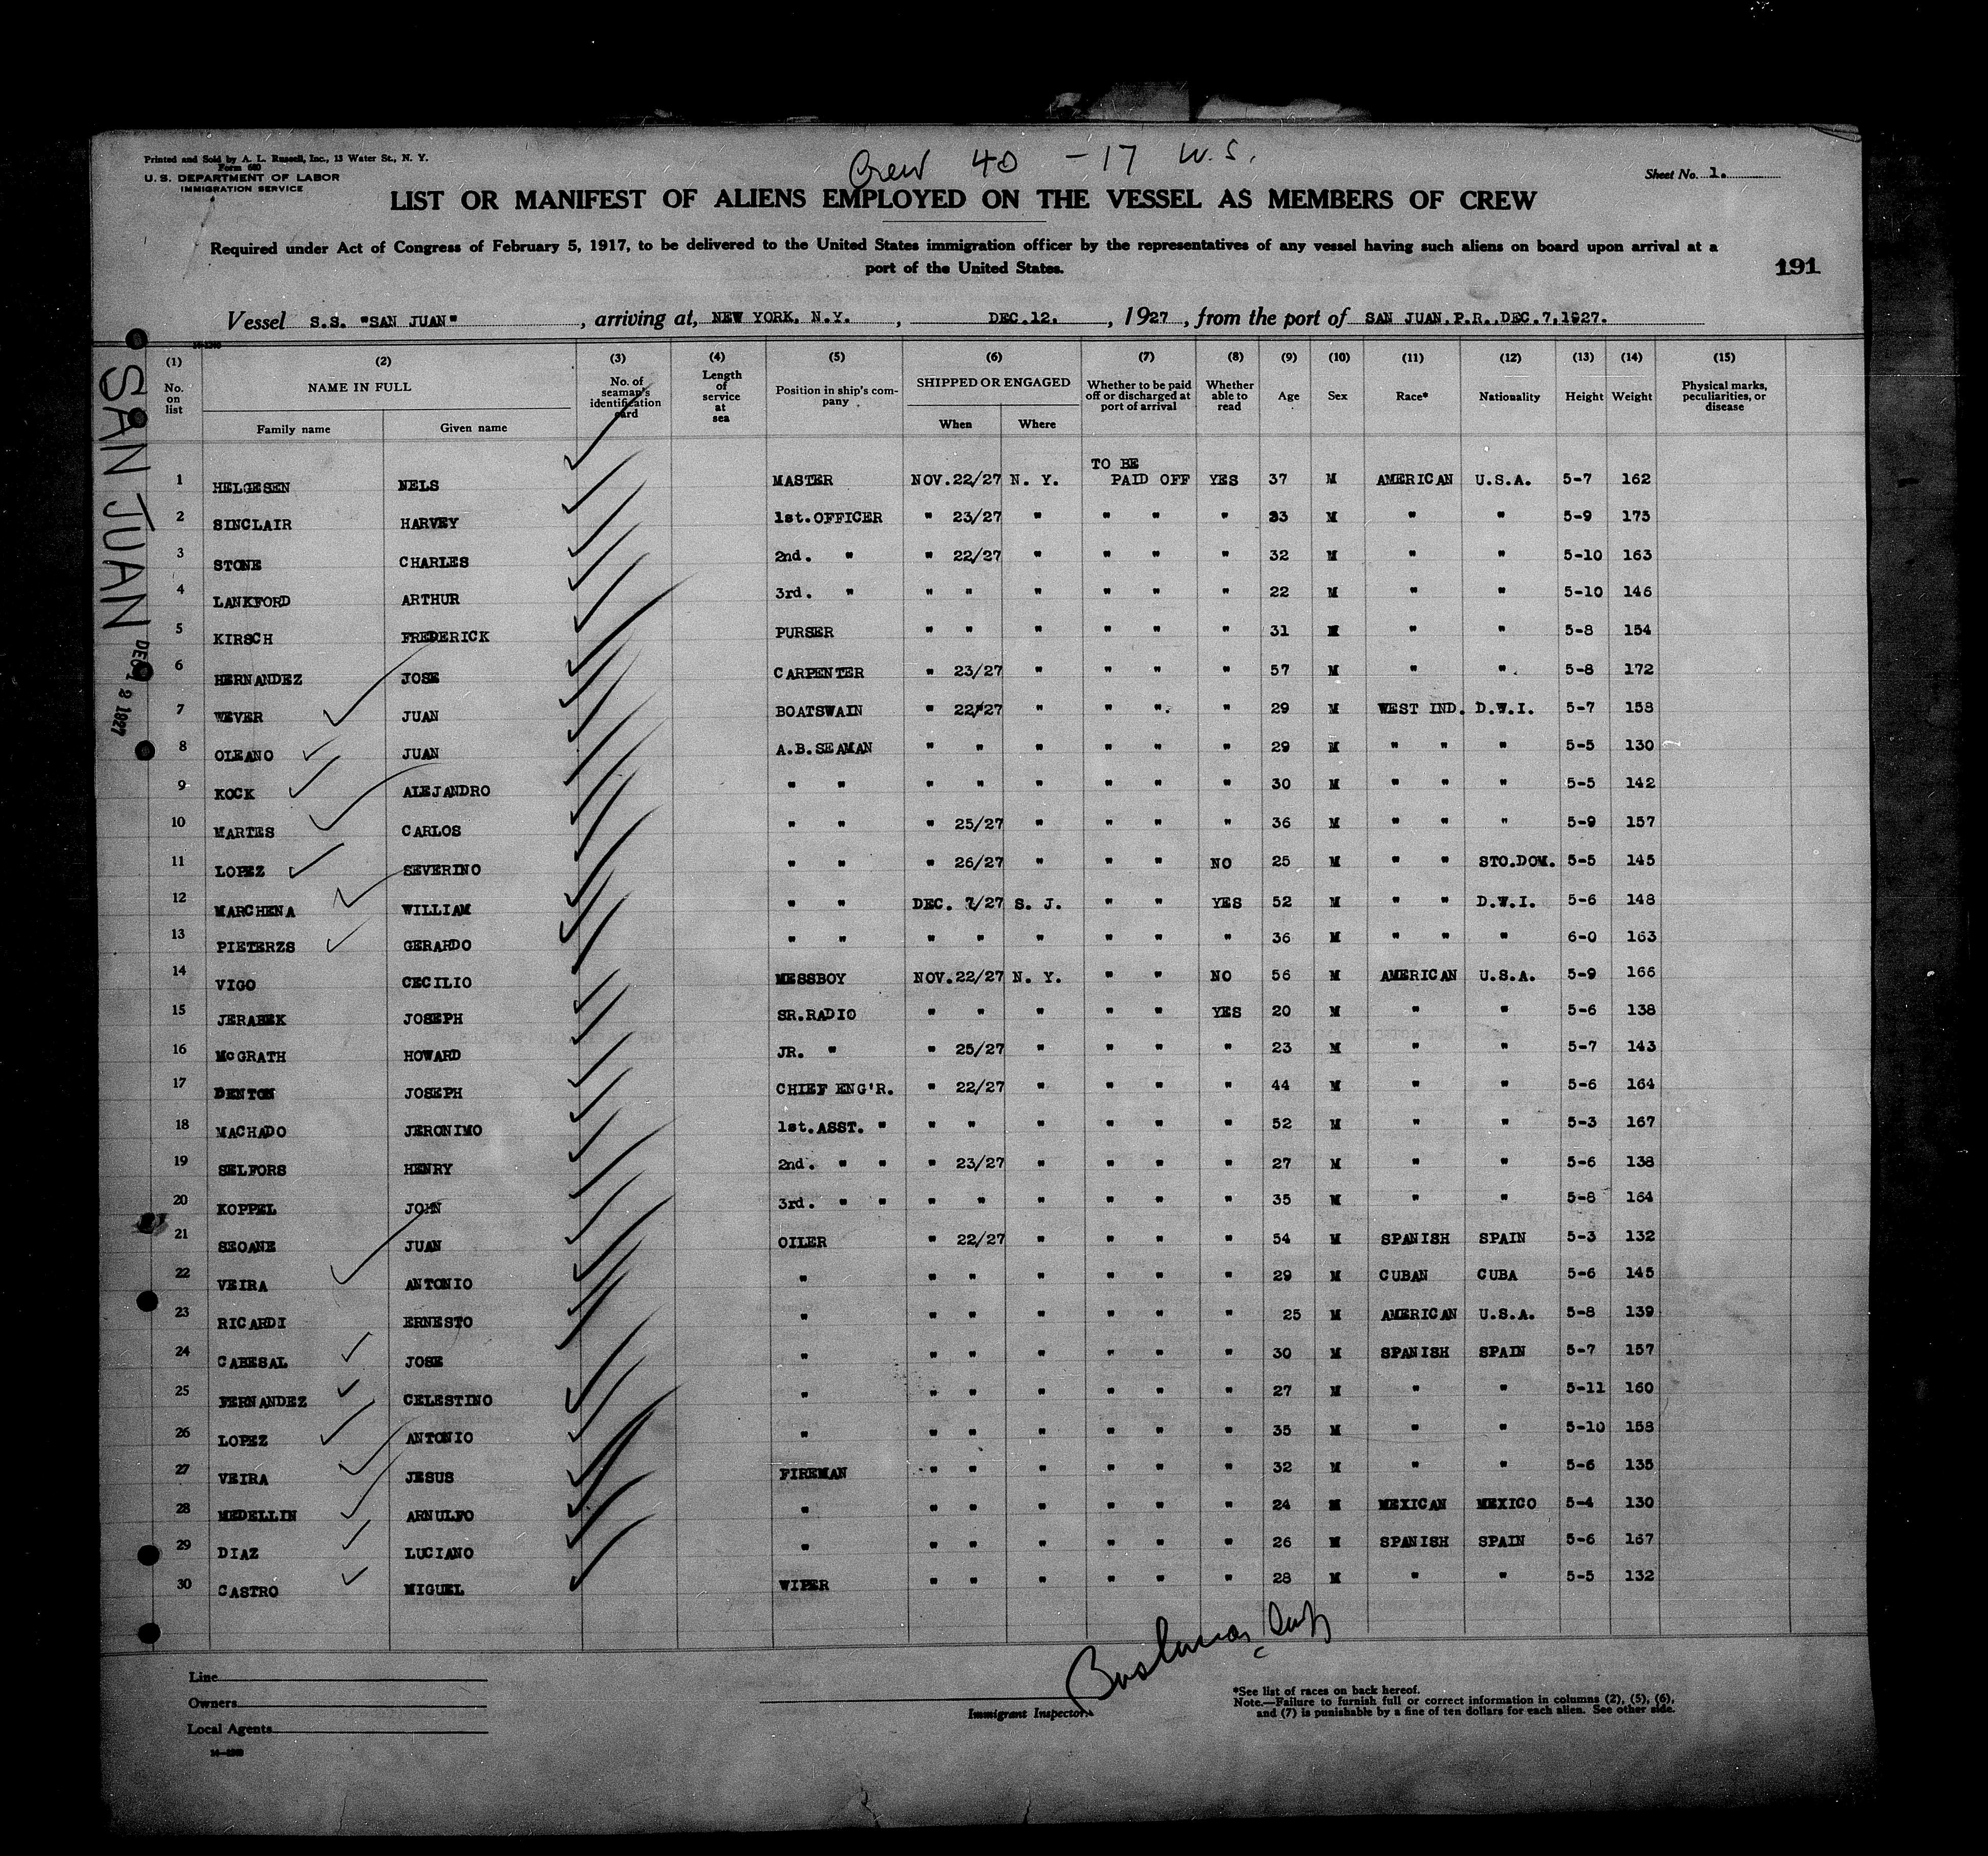 Crew 40 - 17 U.S.
Printed and Sold by A. L. Russell, Inc., 13 Water St., N. Y.
Form 680
U. S. DEPARTMENT OF LABOR
IMMIGRATION SERVICE
Sheet No. 1.
LIST OR MANIFEST OF ALIENS EMPLOYED ON THE VESSEL AS MEMBERS OF CREW
Required under Act of Congress of February 5, 1917, to be delivered to the United States immigration officer by the representatives of any vessel having such aliens on board upon arrival at a
port of the United States.
191
Vessel S.S. "SAN JUAN", arriving at, NEW YORK, N.Y., DEC.12., 1927, from the port of SAN JUAN.P.R.,DEC.7,1927.
SAN JUAN DEC 12 1927
(1) (2) (3) (4) (5) (6) (7) (8) (9) (10) (11) (12) (13) (14) (15)
No. on list NAME IN FULL Family name Given name No. of seaman's identification card Length of service at sea Position in ship's company SHIPPED OR ENGAGED When Where Whether to be paid off or discharged at port of arrival Whether able to read Age Sex Race* Nationality Height Weight Physical marks, peculiarities, or disease
1 HELGESEN NELS MASTER NOV.22/27 N. Y. TO BE PAID OFF YES 37 M AMERICAN U.S.A. 5-7 162
2 SINCLAIR HARVEY 1st.OFFICER " 23/27 " " " " 33 M " " 5-9 173
3 STONE CHARLES 2nd. " " 22/27 " " " " 32 M " " 5-10 163
4 LANKFORD ARTHUR 3rd. " " " " " " " 22 M " " 5-10 146
5 KIRSCH FREDERICK PURSER " " " " " " 31 M " " 5-8 154
6 HERNANDEZ JOSE CARPENTER " 23/27 " " " " 57 M " " 5-8 172
7 WEVER JUAN BOATSWAIN " 22/27 " " " " 29 M WEST IND. D.W.I. 5-7 158
8 OLEANO JUAN A.B.SEAMAN " " " " " " 29 M " " " 5-5 130
9 KOCK ALEJANDRO " " " " " " " " 30 M " " " 5-5 142
10 MARTES CARLOS " " " 25/27 " " " " 36 M " " " 5-9 157
11 LOPEZ SEVERINO " " " 26/27 " " " NO 25 M " " STO.DOM. 5-5 145
12 MARCHENA WILLIAM " " DEC. 7/27 S. J. " " YES 52 M " " D.W.I. 5-6 148
13 PIETERZS GERARDO " " " " " " " " 36 M " " " 6-0 163
14 VIGO CECILIO MESSBOY NOV.22/27 N. Y. " " NO 56 M AMERICAN U.S.A. 5-9 166
15 JERABEK JOSEPH SR.RADIO " " " " " YES 20 M " " 5-6 138
16 McGRATH HOWARD JR. " " 25/27 " " " " 23 M " " 5-7 143
17 DENTON JOSEPH CHIEF ENG'R. " 22/27 " " " " 44 M " " 5-6 164
18 MACHADO JERONIMO 1st.ASST. " " " " " " " 52 M " " 5-3 167
19 SELFORS HENRY 2nd. " " " 23/27 " " " " 27 M " " 5-6 138
20 KOPPEL JOHN 3rd. " " " " " " " " 35 M " " 5-8 164
21 SEOANE JUAN OILER " 22/27 " " " " 54 M SPANISH SPAIN 5-3 132
22 VEIRA ANTONIO " " " " " " " 29 M CUBAN CUBA 5-6 145
23 RICARDI ERNESTO " " " " " " " 25 M AMERICAN U.S.A. 5-8 139
24 CABESAL JOSE " " " " " " " 30 M SPANISH SPAIN 5-7 157
25 FERNANDEZ CELESTINO " " " " " " " 27 M " " 5-11 160
26 LOPEZ ANTONIO " " " " " " " 35 M " " 5-10 158
27 VEIRA JESUS FIREMAN " " " " " " 32 M " " 5-6 135
28 MEDELLIN ARNULFO " " " " " " " 24 M MEXICAN MEXICO 5-4 130
29 DIAZ LUCIANO " " " " " " " 26 M SPANISH SPAIN 5-6 167
30 CASTRO MIGUEL WIPER " " " " " " 28 M " " 5-5 132
Line
Owners
Local Agents
Immigrant Inspector.
*See list of races on back hereof.
Note.—Failure to furnish full or correct information in columns (2), (5), (6),
and (7) is punishable by a fine of ten dollars for each alien. See other side.